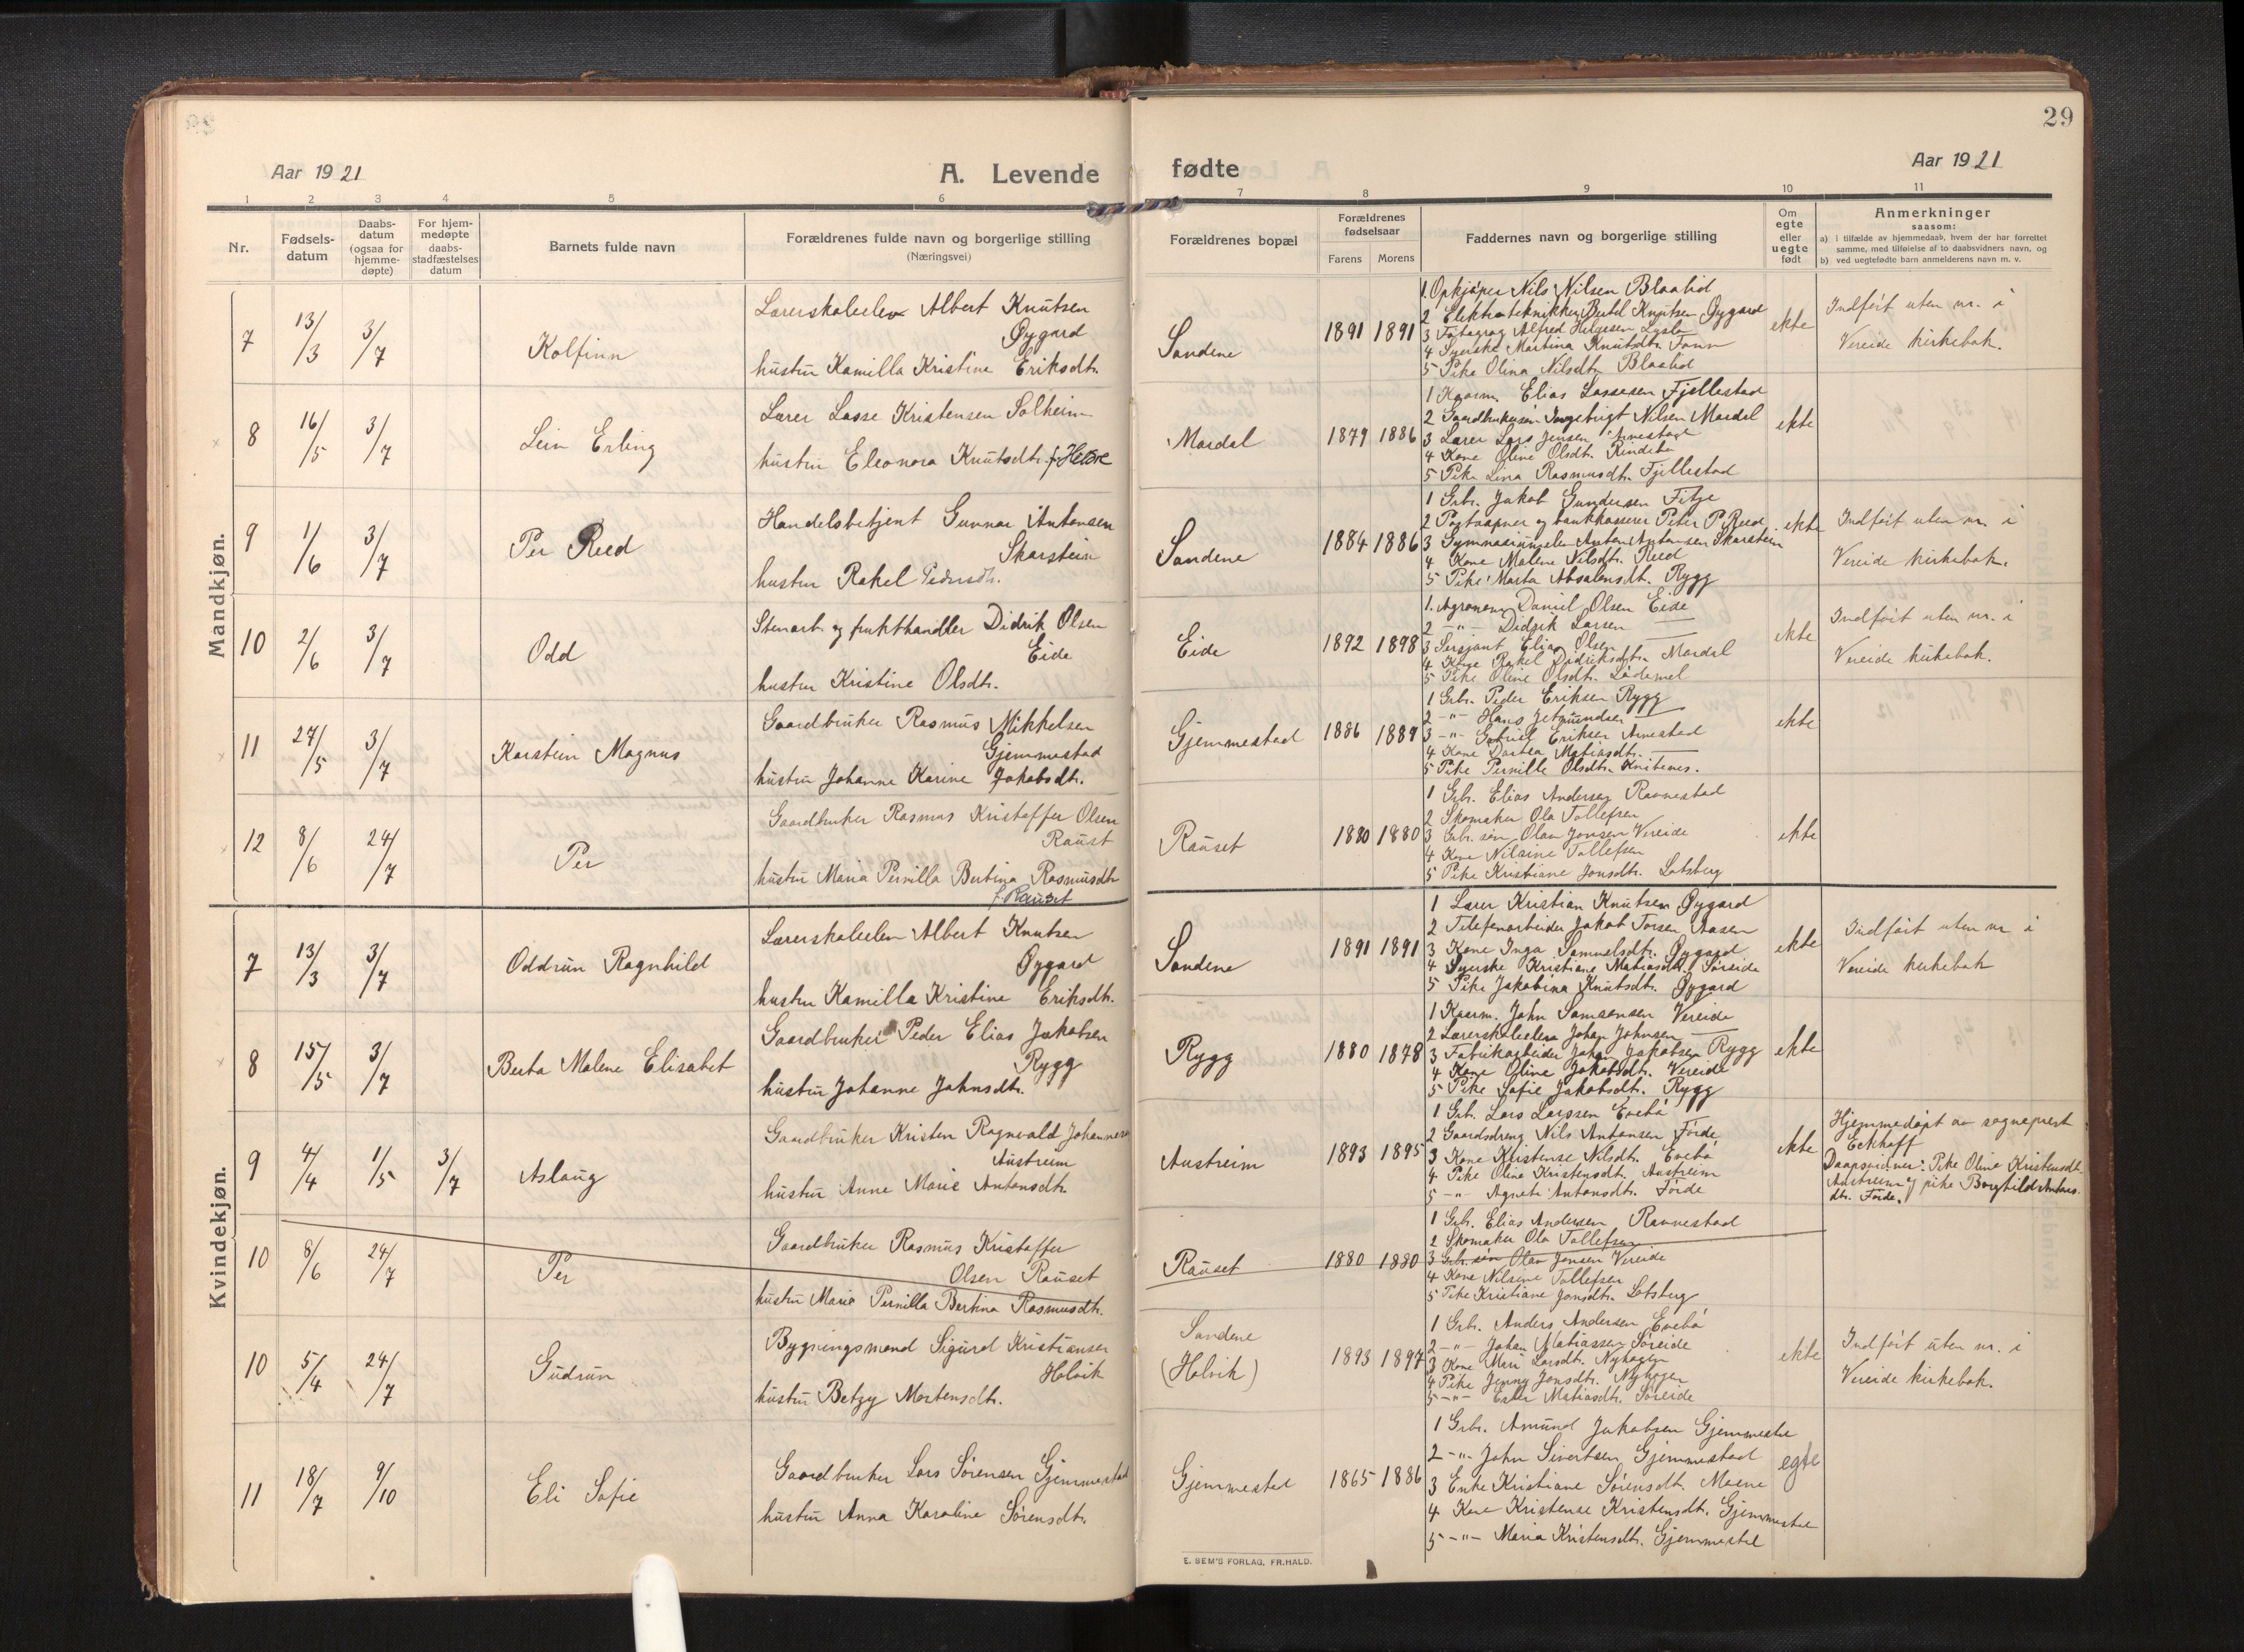 29
Aar 1921
A. Levende
fødte
Aar 1921
1 2 3 4 5 6 7 8 9 10 11
Nr.
Fødsels-
datum
Daabs-
datum
(ogsaa for
hjemme-
døpte)
For hjem-
medøpte
daabs-
stadfæstelses
datum
Barnets fulde navn
Forældrenes fulde navn og borgerlige stilling
(Næringsvei)
Forældrenes bopæl
Forældrenes
fødselsaar
Farens Morens
Faddernes navn og borgerlige stilling
Om
egte
eller
uegte
født
Anmerkninger
saasom:
a) i tilfælde av hjemmedaab, hvem der har forrettet
samme, med tilføielse af to daabsvidners navn, og
b) ved uegtefødte barn anmelderens navn m. v.
Mandkjøn.
7 13/3 3/7 Kolfinn
Lærerskoleelev Albert Knutsen
Øygard
hustru Kamilla Kristine Eriksdtr.
Sandene 1891 1891
1. Opkjøper Nils Nilsen Blaalid
2 Elektrotekniker Bertel Knutsen Øygard
3 Fotograf Alfred Helgesen
4 Syerske Martina Knutsdtr.
5 Pike Olina Nilsdtr. Blaalid
ekte
Indført uten nr. i
Vereide kirkebok.
8 16/5 3/7 Lein Erling
Lærer Lasse Kristensen Solheim
hustru Eleonora Knutsdtr. f. Hestre
Mardal 1879 1886
1 Kaarm. Elias Lassesen Fjellestad
2 Gaardbrukersøn Ingebrigt Nilsen Mardal
3 Lærer Lars Jensen Arnestad
4 Kone Oline Olsdt. Rindebø
5 Pike Lina Rasmusdt. Fjellestad
ekte
9 1/6 3/7 Per Reed
Handelsbetjent Gunnar Antonsen
Skarstein
hustru Rakel Pedersdtr.
Sandene 1884 1886
1 Grb. Jakob Gundersen Fitje
2 Postaapner og bankkasserer Peter P. Reed
3 Gymnasiumselev Anton Antonsen Skarstein
4 Kone Malene Nilsdt. Reed
5 Pike Marta Absalonsdt. Rygg
ekte
Indført uten nr. i
Vereide kirkebok.
10 2/6 3/7 Odd
Stenarb. og frukthandler Didrik Olsen
Eide
hustru Kristine Olsdtr.
Eide 1892 1898
1. Agronom Daniel Olsen Eide
2 -"- Didrik Larsen —
3 Sersjant Elias Olsen —
4 Kone Rakel Didriksdtr. Mardal
5 Pike Oline Olsdt. Lødemel
ekte
Indført uten nr. i
Vereide kirkebok.
11 27/5 3/7 Karstein Magnus
Gaardbruker Rasmus Mikkelsen
Gjemmestad
hustru Johanne Karine Jakobsdtr.
Gjemmestad 1886 1889
1 Grb. Peder Eriksen Rygg
2 -"- Hans Jetmundsen —
3 -"- Gabriel Eriksen Arnestad
4 Kone Dortea Matiasdtr. —
5 Pike Pernille Olsdtr. Knitenes.
ekte
12 8/6 24/7 Per
Gaardbruker Rasmus Kristoffer Olsen
Raust
hustru Maria Pernilla Bertina Rasmusdtr
f. Rauset
Rauset 1880 1880
1 Grb. Elias Andersen Ravnestad
2 Skomaker Ola Tollefsen
3 Grb. søn Olav Jonsen Vereide
4 Kone Nilsine Tollefsen
5 Pike Kristiane Jonsdtr. Lotsberg
ekte
Kvindekjøn.
7 13/3 3/7 Oddrun Ragnhild
Lærerskoleelev Albert Knutsen
Øygard
hustru Kamilla Kristine Eriksdtr.
Sandene 1891 1891
1 Lærer Kristian Knutsen Øygard
2 Telefonarbeider Jakob Torsen Aasen
3 Kone Inga Samuelsdt. Øygard
4 Syerske Kristiane Matiasdtr. Søreide
5 Pike Jakobina Knutsdt. Øygard
ekte
Indført uten nr i
Vereide kirkebok
8 15/5 3/7 Berta Malene Elisabet
Gaardbruker Peder Elias Jakobsen
Rygg
hustru Johanne Johnsdtr.
Rygg 1880 1878
1 Kaarm. John Samsonsen Vereide
2 Lærerskoleelev Johan Johnsen —
3 Fabrikarbeider Johan Jakobsen Rygg
4 Kone Oline Jakobsdt. Vereide
5 Pike Sofie Jakobsdt. Rygg
ekte
9 4/4 1/5 3/7 Aslaug
Gaardbruker Kristen Ragnvald Johannesen
Austreim
hustru Anne Marie Antonsdtr.
Austreim 1893 1895
1 Grb. Lars Larssen Evebø
2 Gaardsdreng Nils Antonsen Førde
3 Kone Kristense Nilsdt. Evebø
4 Pike Oline Kristensdt. Austreim
5 -"- Agnete Antonsdt. Førde
ekte
Hjemmedøpt av sogneprest
Eckhoff
Daapsvidner: Pike Oline Kristensdt.
Austreim og pike Borghild Antons-
dtr. Førde.
10 8/6 24/7 Per
Gaardbruker Rasmus Kristoffer
Olsen Rauset
hustru Marie Pernilla Bertina Rasmusdtr.
Rauset 1880 1880
1 Grb. Elias Andersen Ravnestad
2 Skomaker Ola Tollefsen
3 Grb. søn Olav Jonsen Vereide
4 Kone Nilsine Tollefsen
5 Pike Kristiane Jonsdtr. Lotsberg
10 5/4 24/7 Gudrun
Bygningsmand Sigurd Kristiansen
Holvik
hustru Betzy Mortensdtr.
Sandene
(Holvik) 1893 1897
1 Grb. Anders Andersen Evebø
2 -"- Johan Matiassen Søreide
3 Kone Mari Larsdt. Nyhagen
4 Pike Jenny Jonsdtr. Nyhagen
5 -"- Ester Matiasdt. Søreide
ekte
Indført uten nr. i
Vereide kirkebok.
11 18/7 9/10 Eli Sofie
Gaardbruker Lars Sørensen Gjemmestad
hustru Anna Karoline Sørensdtr.
Gjemmestad 1865 1886
1 Grb. Amund Jakobsen Gjemmestad
2 -"- John Sivertsen Gjemmestad
3 Enke Kristiane Sørensdt. Moene
4 Kone Kristense Kristensdt. Gjemmestad
5 -"- Maria Kristensdt. Gjemmestad
egte
E. SEM'S FORLAG, FR.HALD.